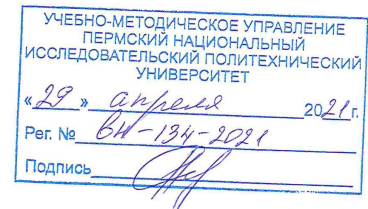 УЧЕБНО-МЕТОДИЧЕСКОЕ УПРАВЛЕНИЕ
ПЕРМСКИЙ НАЦИОНАЛЬНЫЙ
ИССЛЕДОВАТЕЛЬСКИЙ ПОЛИТЕХНИЧЕСКИЙ
УНИВЕРСИТЕТ
«29» апреля 2021г.
Рег. № вн-134-2021
Подпись